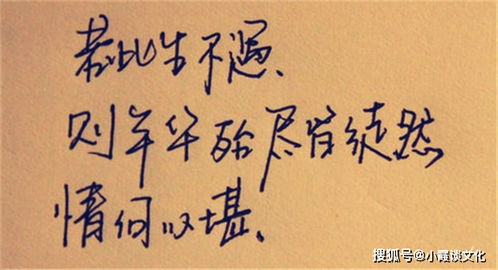 若此生不遇、
则年华殆尽皆徒然
情何以堪、
搜狐号@小霞谈文化